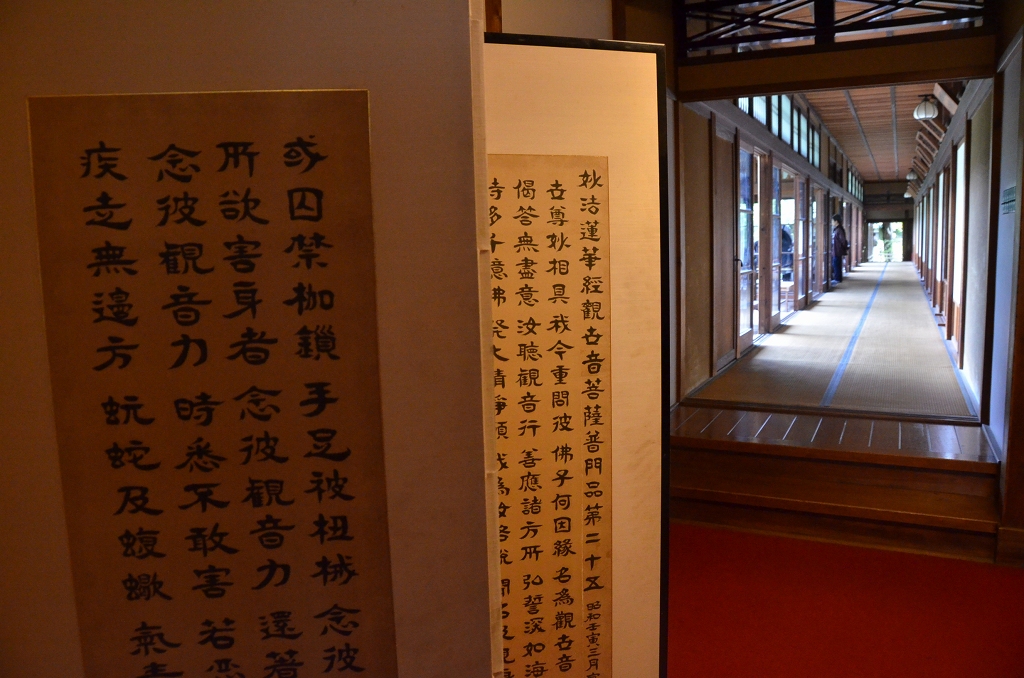 妙法蓮華經觀世音菩薩普門品第二十五 昭和壬寅三月
世尊妙相具 我今重問彼 佛子何因緣 名為觀世音
偈答無盡意 汝聽觀音行 善應諸方所 弘誓深如海
侍多千億佛 發大清淨願 我為汝略說 聞名及見
或囚禁枷鎖 手足被杻械 念彼
所欲害身者 念彼觀音力 還著
念彼觀音力 時悉不敢害 若惡
疾走無邊方 蚖蛇及蝮蠍 氣毒